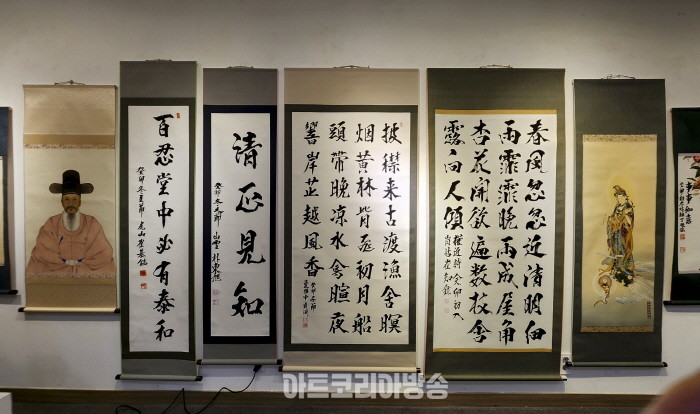 百忍堂中必有泰和
癸卯冬至節
清正見知
披襟来古渡漁舍暝
烟黃林背逐初月船
頭帶晚凉水禽暄夜
響岸芷越風香
癸卯冬節
春風忽忽近清明細
雨霏霏晚雨成屋角
杏花開欲遍數枝含
露向人傾
權近詩 癸卯初入
아트코리아방송